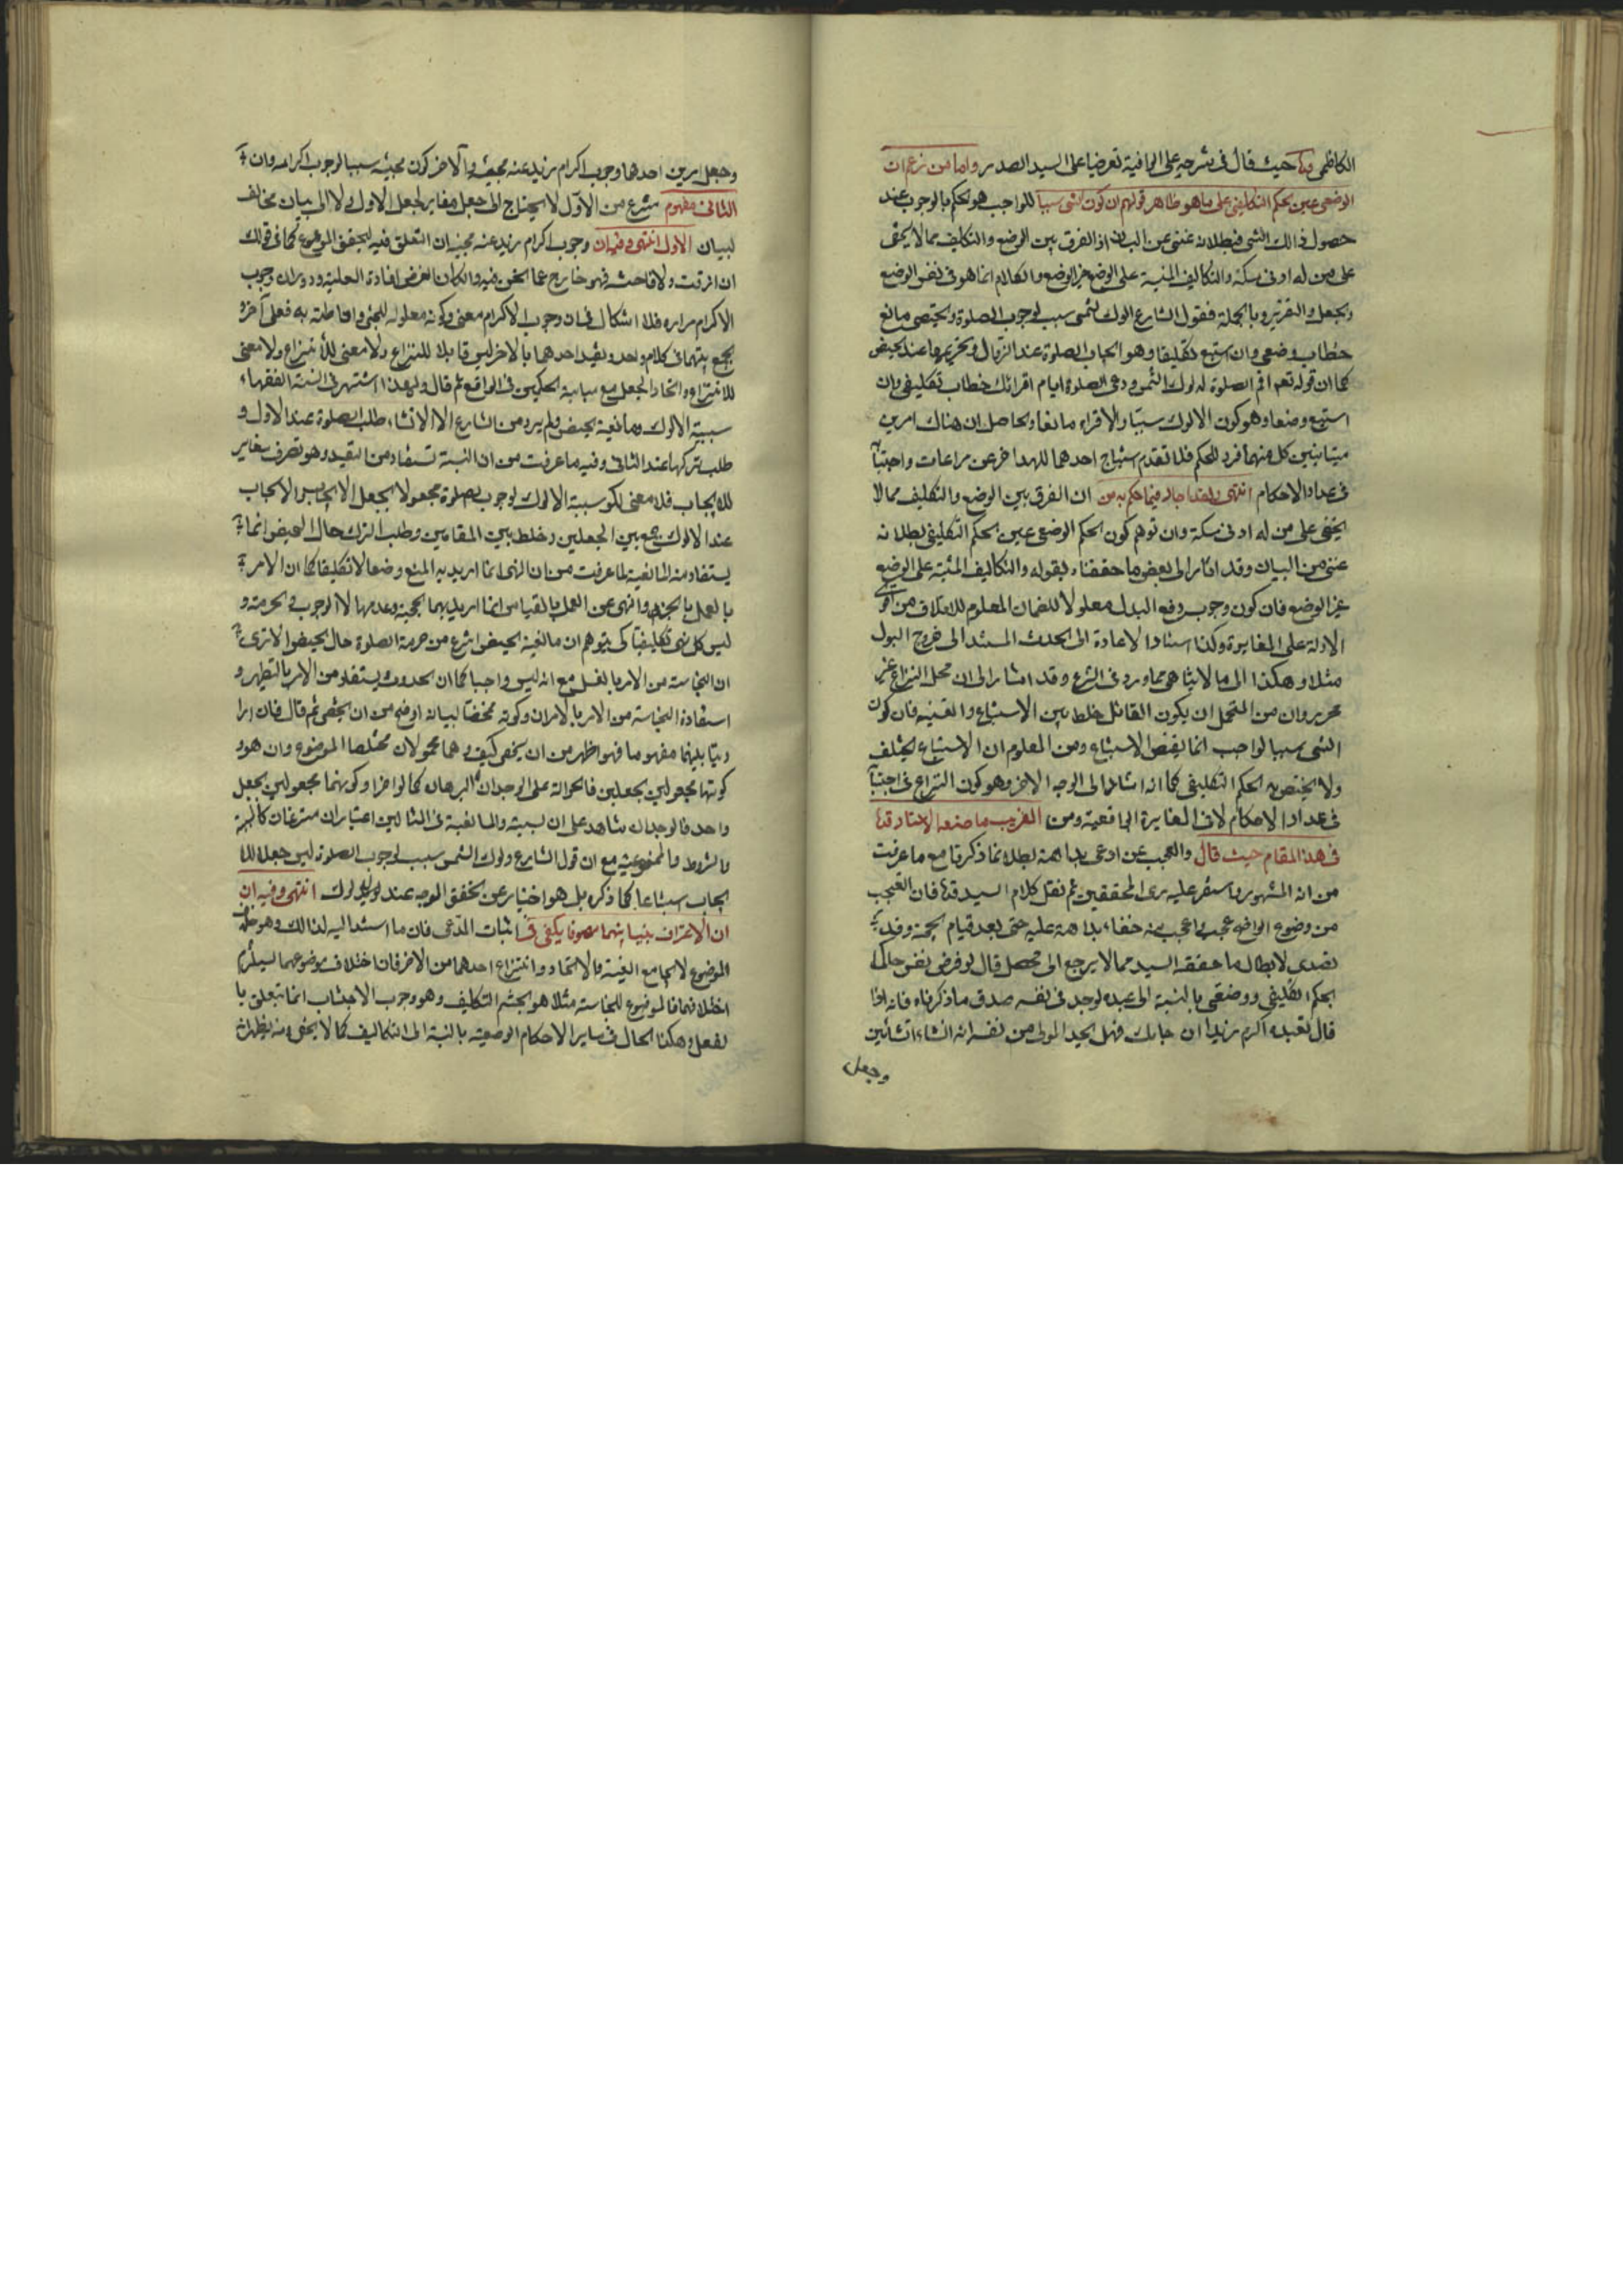 الكاظمى حيث قال فى شرحه على الوافية تعرضا على السيد الصدر واما من زعم ان
الوضعى عين الحكم التكليفى على ما هو ظاهر قولهم ان كون الشى سببا للواجب هو الحكم بالوجوب عند
حصول ذالك الشى فبطلانه غنى عن البيان اذ الفرق بين الوضع والتكليف مما لا يخفى
على من له ادنى مسكة والتكاليف المبنية على الوضع غير الوضع والكلام انما هو فى نفس الوضع
والجعل والتقرير وبالجملة فقول الشارع دلوك الشمس سبب لوجوب الصلوة والحيض مانع
خطاب وضعى وان استتبع تكليفا وهو ايجاب الصلوة عند الزوال وتحريمها عند الحيض
كما ان قوله تعم اقم الصلوة لدلوك الشمس ودعى الصلوة ايام اقرائك خطاب تكليفى وان
استتبع وضعا وهو كون الدلوك سببا والاقراء مانعا والحاصل ان هناك امرين
متباينين كل منهما فرد للحكم فلا استتباع احدهما للاخر عن مراعات واحتسابه
فى عداد الاحكام انتهى ولقد اجاد فيما حكم به من ان الفرق بين الوضع والتكليف مما لا
يخفى على من له ادنى مسكة وان توهم كون الحكم الوضعى عين الحكم التكليفى بطلانه
غنى من البيان وقد اشار الى بعض ما حققناه بقوله والتكاليف المبنية على الوضع
غير الوضع فان كون وجوب دفع البدل معلولا للضمان المعلوم للاتلاف من اقوى
الادلة على المغايرة وكذا استناد الاعادة الى الحدث المستند الى خروج البول
مثلا وهكذا الى ما لا يتناهى مما ورد فى الشرع وقد اشار الى ان محل النزاع غير
محرر وان من المحتمل ان يكون القائل خلط بين الاستتباع والعينية فان كون
الشى سببا لواجب انما يقتضى الاستتباع ومن المعلوم ان الاستتباع يختلف
ولا يختص به الحكم التكليفى كما انه اشار الى الوجه الاخر وهو كون النزاع فى احتسابه
فى عداد الاحكام لا فى المغايرة الواقعية ومن الغريب ما صنعه الاستاد قده
فى هذا المقام حيث قال والعجب عن ادعى بداهة بطلان ما ذكرنا مع ما عرفت
من انه المشهور واستقر عليه رى المحققين ثم نقل كلام السيد قده فان التعجب
من وضوح الواضح عجب واعجب منه خفاء بداهة عليه حتى بعد قيام الحجة وقد
تصدى لابطال ما حققه السيد مما لا يرجع الى محصل قال لو فرض نفس حاكما
بحكم تكليفى ووضعى بالنسبة الى عبده لوجد فى نفسه صدق ما ذكرناه فانه اذا
قال لعبده اكرم زيدا ان جاءك فهل يجد المولى من نفسه انه انشاء انشائين
وجعل
وجعل امرين احدهما وجوب اكرام زيد عند مجيئه والاخر كون مجيئه سببا لوجوب اكرامه وان
الثانى مفهوم منتزع من الاول لا يحتاج الى جعل مغاير لجعل الاول ولا الى بيان مخالف
لبيان الاول انتهى وفيه ان وجوب اكرام زيد عند مجيئه ان التعلق فيه لتحقق الموضوع كما فى قولك
ان رزقت ولدا فاختنه فهو خارج عما نحن فيه وان كان الغرض افادة العلية ودوران وجوب
الاكرام مداره فلا اشكال فى ان وجوب الاكرام معنى وكونه معلولا للمجئ واناطته به فعل آخر
يجمع بينهما فى كلام واحد وتقيد احدهما بالاخر ليس قابلا للنزاع ولا معنى للانتزاع ولا معنى
للانتزاع واتحاد الجعل مع مباينة الحكمين فى الواقع ثم قال ولهذا اشتهر فى السنة الفقهاء
سببية الدلوك ومانعية الحيض ولم يرد من الشارع الا الانشاء طلب الصلوة عند الاول و
طلب تركها عند الثانى وفيه ما عرفت من ان السببية تستفاد من التقييد وهو تصرف مغاير
للايجاب فلا معنى لكون سببية الدلوك لوجوب الصلوة مجعولا بجعل الايجاب الايجاب
عند الدلوك جمع بين الجعلين وخلط بين المقامين وطلب الترك حال الحيض انما
يستفاد منه المانعية لما عرفت من ان النهى انما اريد به المنع وضعا لا تكليفا كما ان الامر
بالعمل بالخبر والنهى عن العمل بالقياس انما اريد بهما الحجية وعدمها لا الوجوب والحرمة و
ليس كل نهى تكليفيا كى يتوهم ان مانعية الحيض انتزع من حرمة الصلوة حال الحيض الا ترى
ان النجاسة من الامر بالغسل مع انه ليس واجبا كما ان الحدوث يستفاد من الامر بالتطهير و
استفادة النجاسة من الامر بالامران وكونه مختصا لبيانه اوضح من ان يخفى ثم قال فان ارا
د تباينهما مفهوما فهو اظهر من ان يخفى كيف وهما محمولان مختلفا الموضوع وان هو
كونهما مجعولين بجعلين فالحوالة على الوجدان لا البرهان كما لو اراد كونهما مجعولين بجعل
واحد فالوجدان شاهد على ان السببية والمانعية فى المثالين اعتباران منتزعان كالسببية
والشروط والممنوعية مع ان قول الشارع دلوك الشمس سبب لوجوب الصلوة ليس جعلا للا
يجاب استتباعا كما ذكره بل هو اخبار عن تحقق الوجوب عند الدلوك انتهى وفيه ان
ان الاعتراف بتباينهما مفهوما يكفى فى اثبات المدعى فان ما استند اليه لذالك وهو اختلاف
الموضوع لا يجامع العينية والاتحاد وانتزاع احدهما من الاخر فان اختلاف موضوعهما يستلزم
اختلافهما فالموضوع للنجاسة مثلا هو الجسم التكليف وهو وجوب الاجتناب انما يتعلق با
لفعل وهكذا الحال فى ساير الاحكام الوضعية بالنسبة الى التكاليف كما لا يخفى ومنه يظهر ان